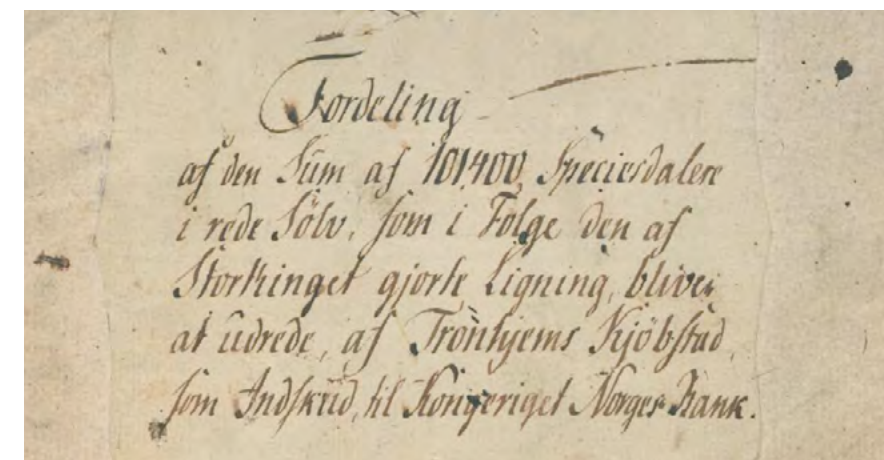 Fordeling
af den Sum af 101,400 Speciesdalere
i rede Sölv, som i Fölge den af
Storthinget gjorte Ligning, bliver
at udrede, af Tronhjems Kjöbstad,
som Indskud, til Kongeriget Norges Bank.